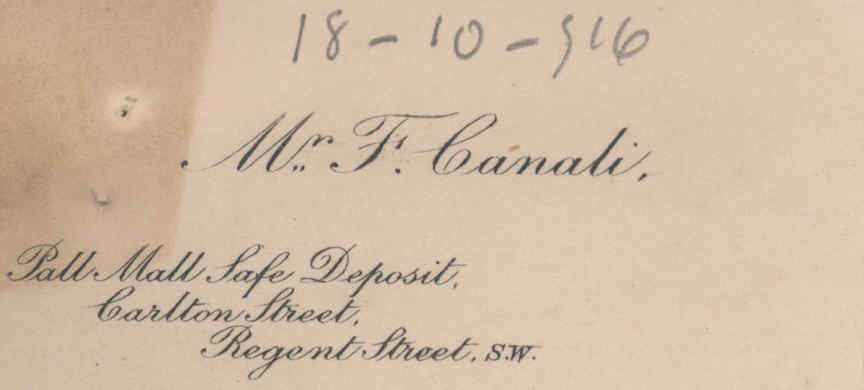 18-10-916
Mr. F. Canali.
Pall Mall Safe Deposit,
Carlton Street,
Regent Street, S.W.